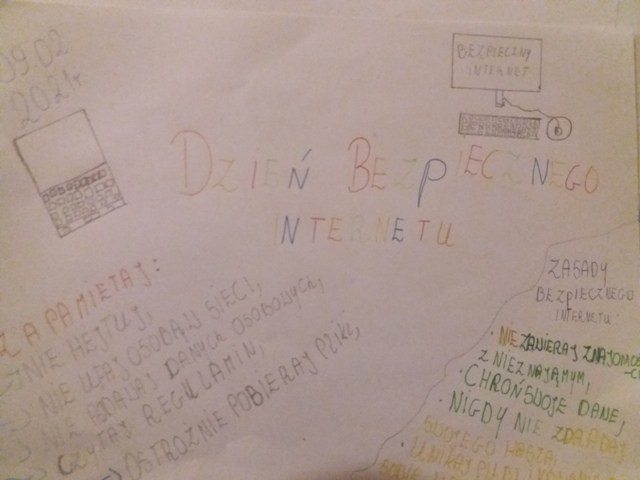 09.02
2021r
BEZPIECZNY
INTERNET
DZIEŃ BEZPIECZNEGO
INTERNETU
ZAPAMIETAJ:
NIE HEJTUJ,
NIE UFAJ OSOBĄ W SIECI,
NIE PODAWAJ DANYCH OSOBOWYCH,
CZYTAJ REGULAMIN,
OSTROŻNIE POBIERAJ PLIKI,
ZASADY
BEZPIECZNEGO
INTERNETU:
NIE ZAWIERAJ ZNAJOMOŚ
-CI
Z NIEZNAJĄMYM,
CHROŃ SWOJE DANE,
NIGDY NIE ZDRADZAJ
SWOJEGO HASŁA,
UNIKAJ